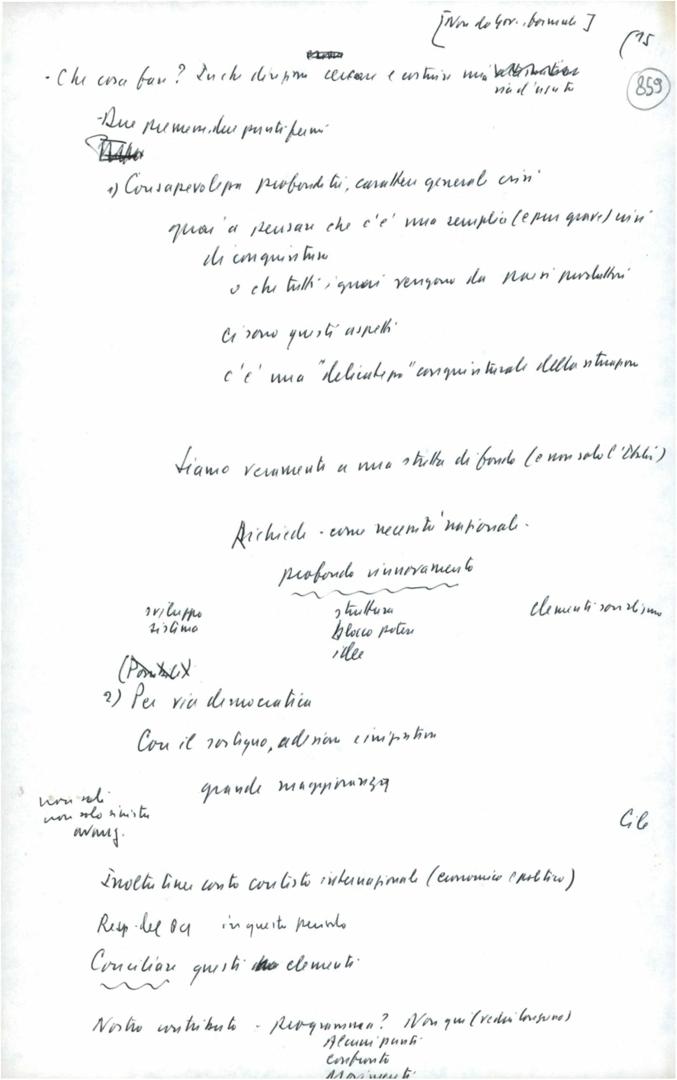 (15
859
- Che cosa fare? In che direzione cercare e costruire una
via d'uscita
- Due premesse, due punti fermi
1) Consapevolezza profondità, carattere generale crisi
guai a pensare che c'è una semplice (e pur grave) crisi
di congiuntura
o che tutti i guai vengono da paesi produttori
ci sono questi aspetti
c'è una "delicatezza" congiunturale della situazione
Siamo veramente a una stretta di fondo (e non solo l'Italia)
Richiede - come necessità nazionale -
profondo rinnovamento
sviluppo struttura elementi socialismo
sistema blocco potere
idee
2) Per via democratica
Con il sostegno, adesione e
grande maggioranza
non soli
non solo sinistra
avang.
Cile
Inoltre tener conto contesto internazionale (economico e politico)
Resp. del PCI in questo periodo
Conciliare questi elementi
Nostro contributo - programma? Non qui
Alcuni punti
confronto
Movimenti